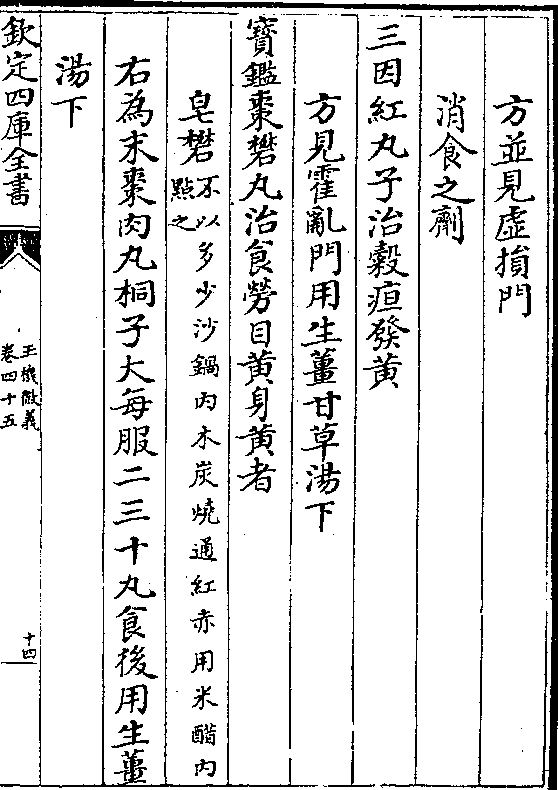 方並見虛損門
消食之劑
三因紅丸子治穀疸發黃
方見霍亂門用生薑甘草湯下
寶鑑棗礬丸治食勞目黃身黃者
皂礬不以多少沙鍋內木炭燒通紅赤用米醋內點之
右為末棗肉丸桐子大每服二三十丸食後用生薑
湯下
欽定四庫全書
玉機微義
卷四十五
十四